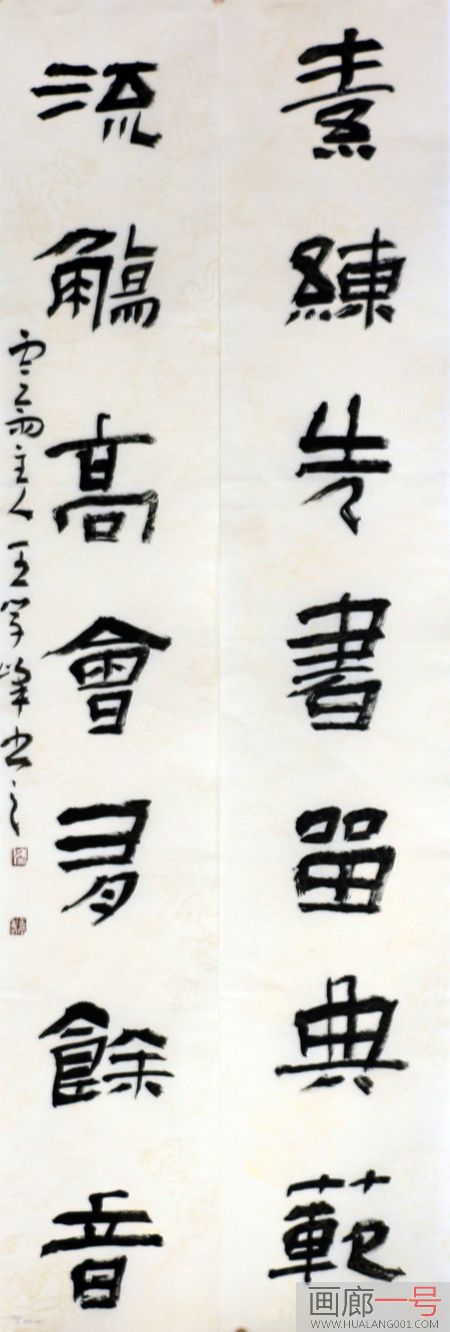 素練先書留典範
流觴高會多餘音
主人王学峰书之
画廊一号
WWW.HUALANG001.COM